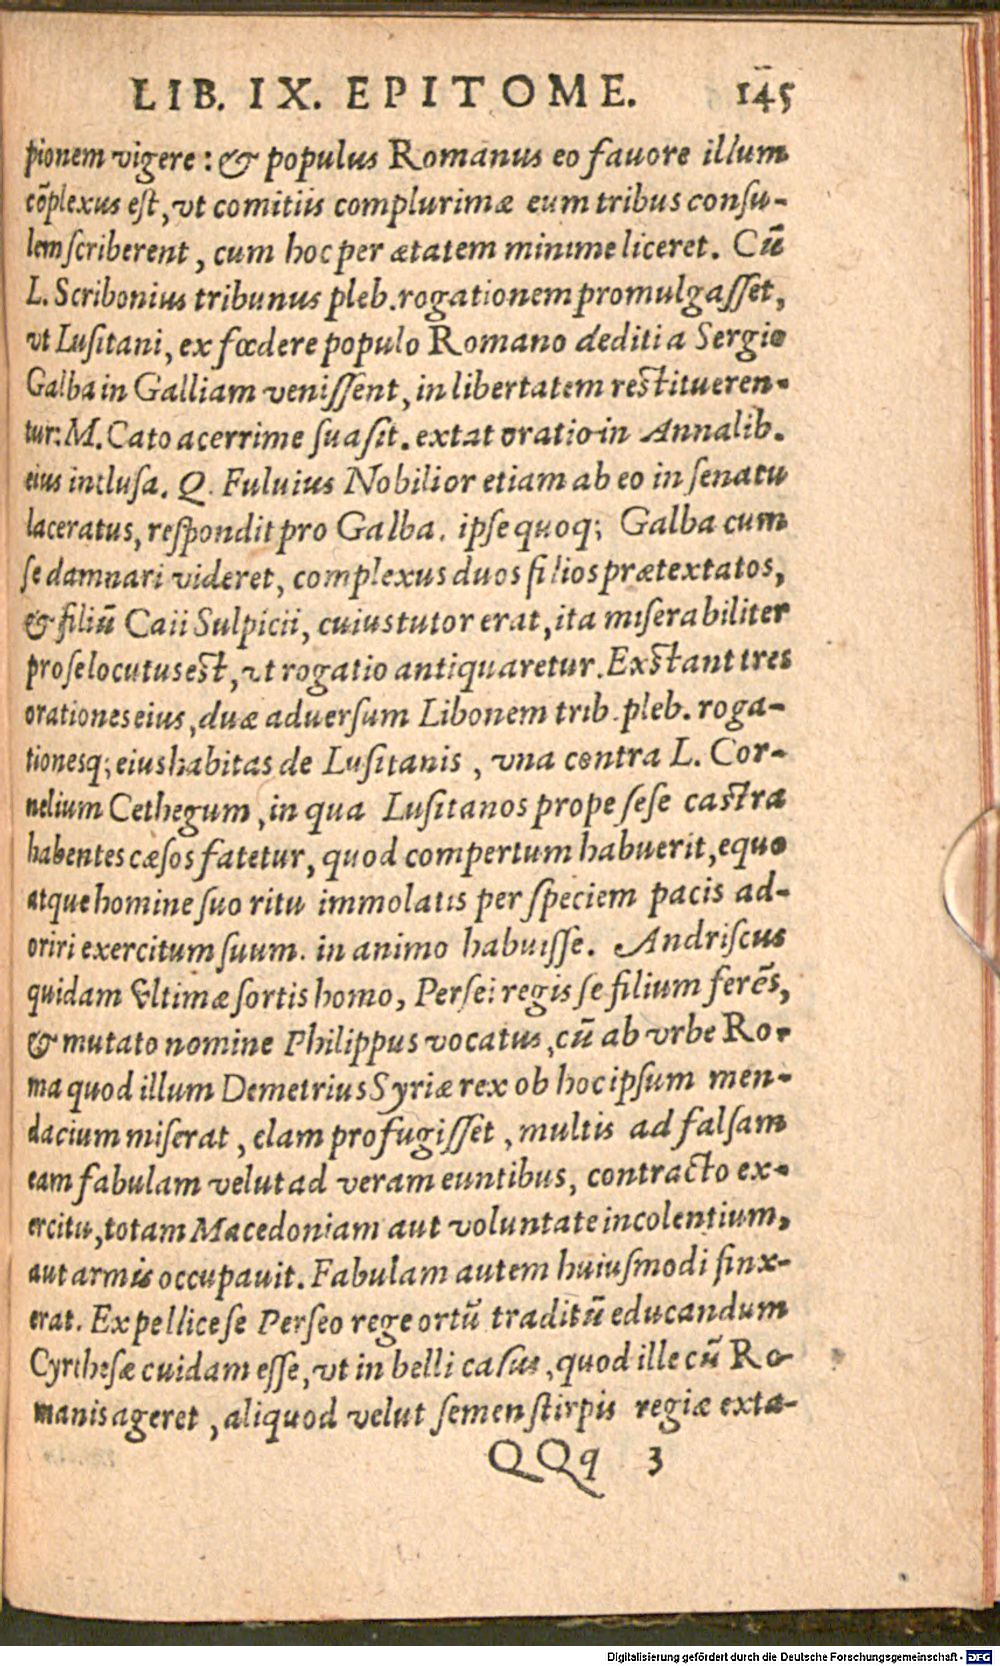 LIB. IX. EPITOME. 145
pionem vigere: & populus Romanus eo fauore illum
cõplexus est, vt comitiis complurimæ eum tribus consu-
lem scriberent, cum hoc per ætatem minime liceret. Cũ
L. Scribonius tribunus pleb. rogationem promulgasset,
vt Lusitani, ex fœdere populo Romano dediti a Sergio
Galba in Galliam venissent, in libertatem restitueren-
tur: M. Cato acerrime suasit. extat oratio in Annalib.
eius inclusa. Q. Fuluius Nobilior etiam ab eo in senatu
laceratus, respondit pro Galba. ipse quoq; Galba cum
se damnari videret, complexus duos filios prætextatos,
& filiũ Caii Sulpicii, cuius tutor erat, ita miserabiliter
pro se locutus est, vt rogatio antiquaretur. Exstant tres
orationes eius, duæ aduersum Libonem trib. pleb. roga-
tionesq; eius habitas de Lusitanis, vna contra L. Cor-
nelium Cethegum, in qua Lusitanos prope sese castra
habentes cæsos fatetur, quod compertum habuerit, equo
atque homine suo ritu immolatis per speciem pacis ad-
oriri exercitum suum. in animo habuisse. Andriscus
quidam vltimæ sortis homo, Persei regis se filium ferẽs,
& mutato nomine Philippus vocatus, cũ ab vrbe Ro-
ma quod illum Demetrius Syriæ rex ob hoc ipsum men-
dacium miserat, clam profugisset, multis ad falsam
eam fabulam velut ad veram euntibus, contracto ex-
ercitu, totam Macedoniam aut voluntate incolentium,
aut armis occupauit. Fabulam autem huiusmodi finx-
erat. Ex pellice se Perseo rege ortũ traditũ educandum
Cyrthesæ cuidam esse, vt in belli casus, quod ille cũ Ro-
manis ageret, aliquod velut semen stirpis regiæ exta-
QQq 3
Digitalisierung gefördert durch die Deutsche Forschungsgemeinschaft - DFG